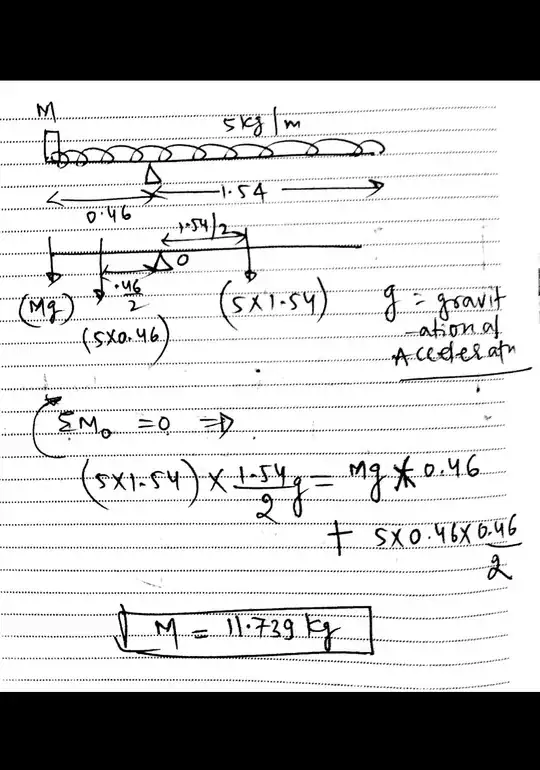 M
5kg/m
0.46
1.54
1.54/2
O
.46/2
(Mg)
(5×0.46)
(5×1.54)
g = gravit
-ational
Acceleratn
ΣM₀ = 0 ⇒
(5×1.54) × 1.54/2 g = Mg × 0.46
+ 5×0.46×0.46/2
M = 11.739 kg